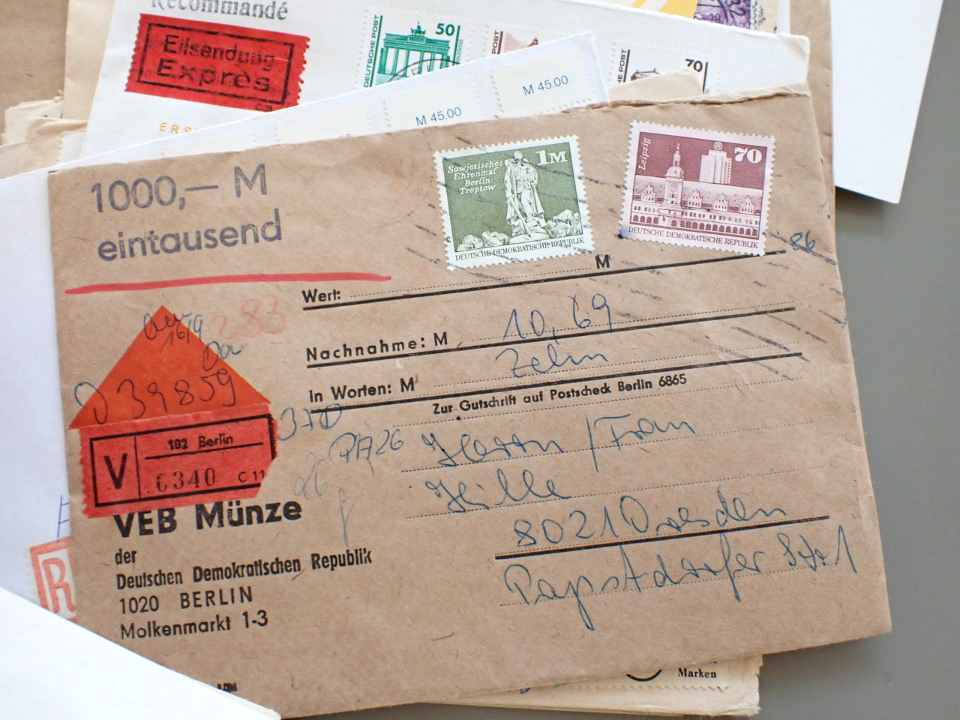 Recommandé
Eilsendung
Exprès
DEUTSCHE POST
50
70
M 45.00
M 45.00
1000,— M
eintausend
Sowjetisches
Ehrenmal
Berlin-
Treptow
1M
DEUTSCHE DEMOKRATISCHE REPUBLIK
Leipzig
70
DEUTSCHE DEMOKRATISCHE REPUBLIK
86
Wert: M
283
Nachnahme: M 10,69
In Worten: M Zehn
Zur Gutschrift auf Postscheck Berlin 6865
39859
370
V
102 Berlin
6340 C 11
Herrn / Frau
Hille
8021 Dresden
Papstdorfer Str 1
VEB Münze
der
Deutschen Demokratischen Republik
1020 BERLIN
Molkenmarkt 1-3
R
Marken